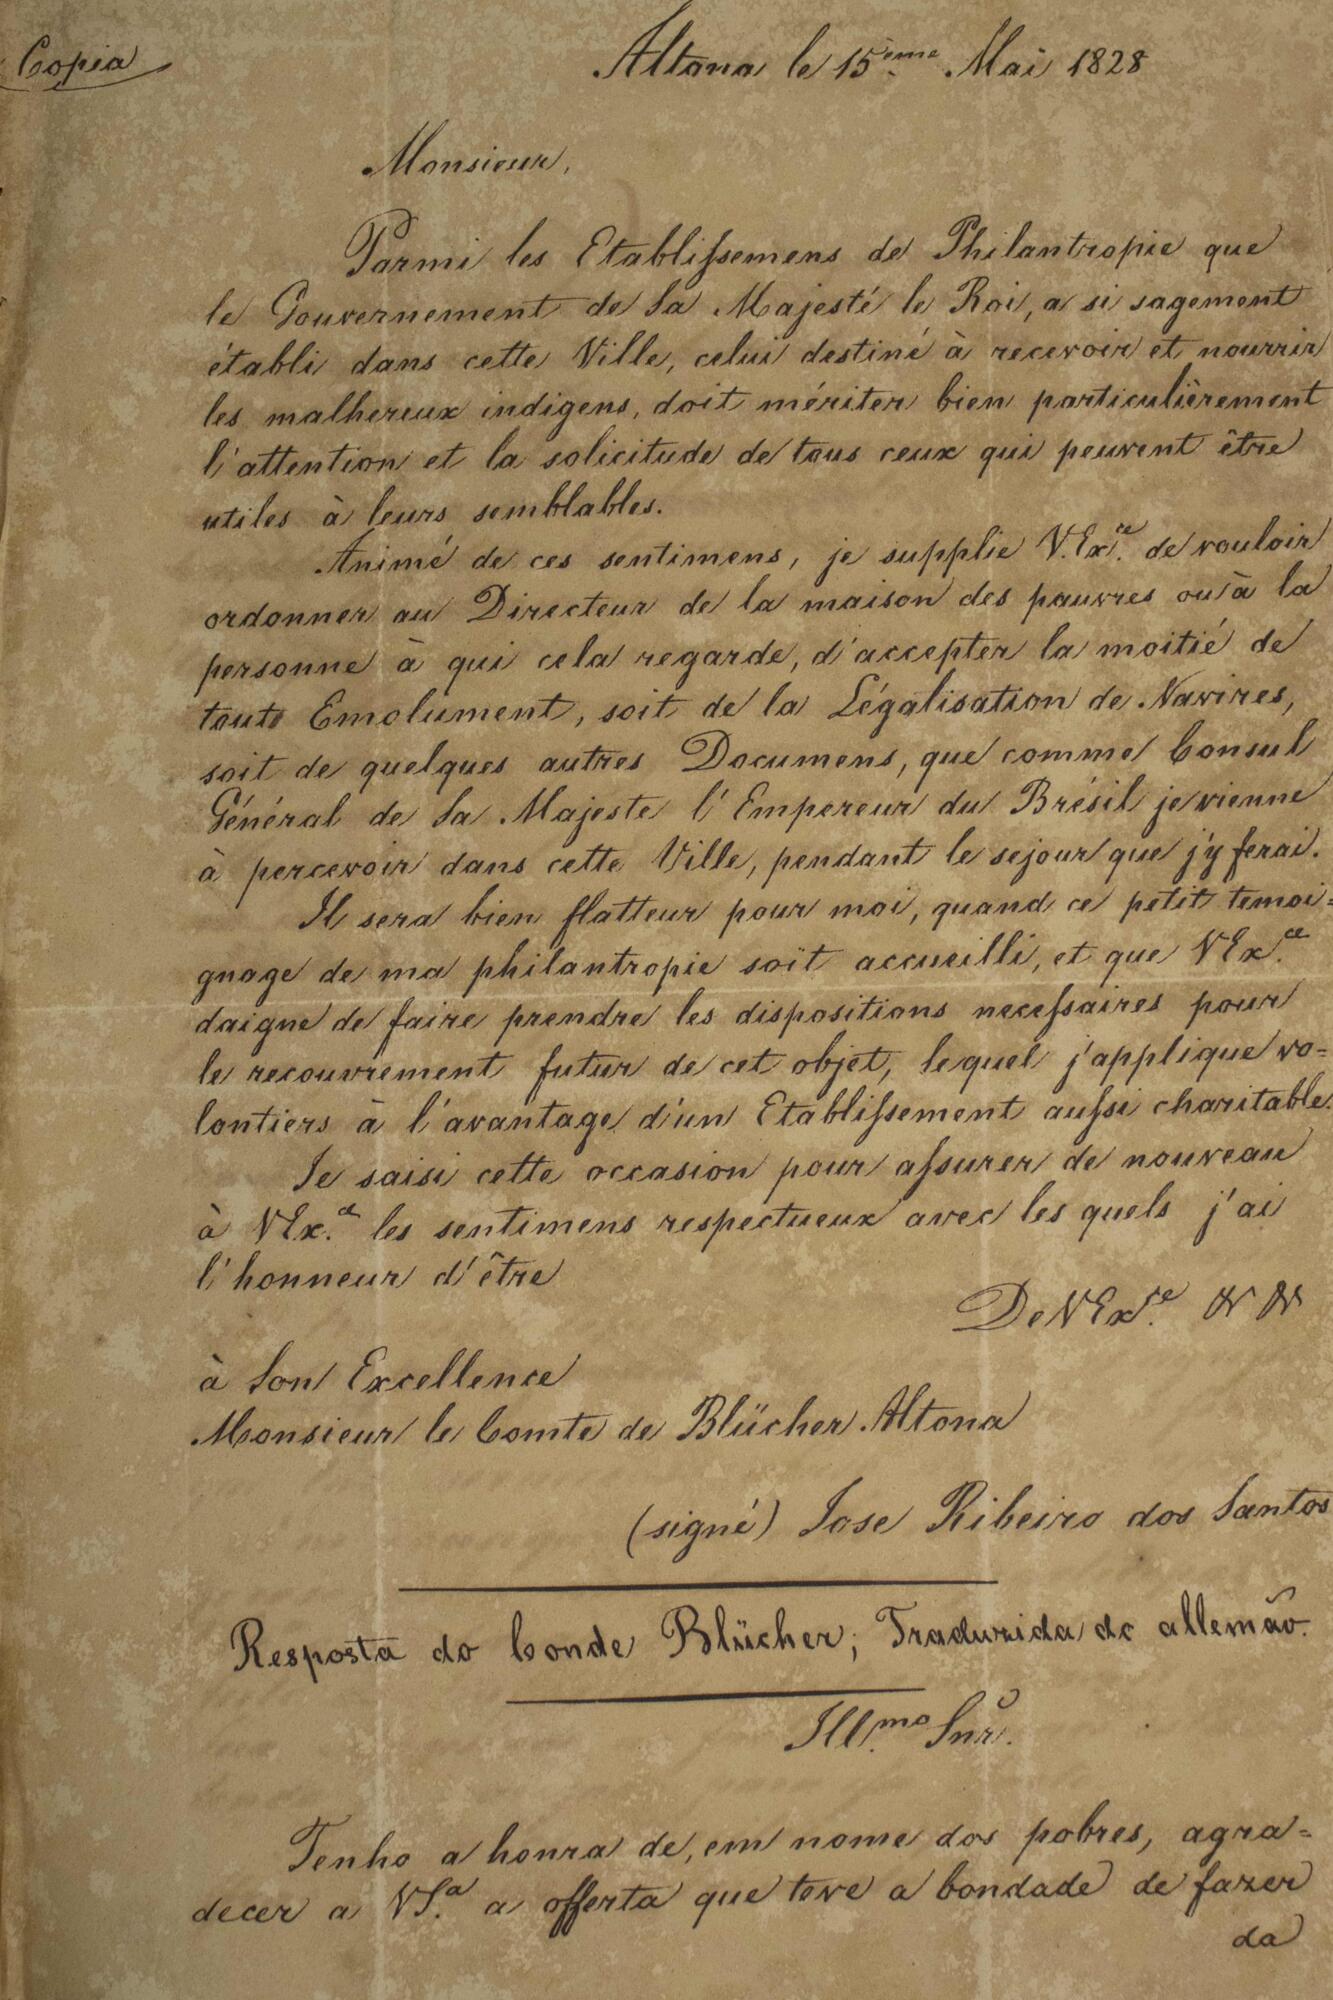 Copia
Altona le 15ème Mai 1828
Monsieur,
Parmi les Etablissemens de Philantropie que
le Gouvernement de Sa Majesté le Roi, a si sagement
établi dans cette Ville, celui destiné à recevoir et nourrir
les malhereux indigens, doit mériter bien particulièrement
l'attention et la solicitude de tous ceux qui peuvent être
utiles à leurs semblables.
Animé de ces sentimens, je supplie V.Exce. de vouloir
ordonner au Directeur de la maison des pauvres ou à la
personne à qui cela regarde, d'accepter la moitié de
toute Emolument, soit de la Légalisation de Navires,
soit de quelques autres Documens, que comme Consul
Général de Sa Majeste l'Empereur du Brésil je vienne
à percevoir dans cette Ville, pendant le sejour que j'y ferai.
Il sera bien flatteur pour moi, quand ce petit temoi=
gnage de ma philantropie soit accueilli, et que VExce.
daigne de faire prendre les dispositions necessaires pour
le recouvrement futur de cet objet, lequel j'applique vo=
lontiers à l'avantage d'un Etablissement aussi charitable.
Je saisi cette occasion pour assurer de nouveau
à VEx.ce les sentimens respectueux avec les quels j'ai
l'honneur d'être
De VExce.
à Son Excellence
Monsieur le Comte de Blücher Altona
(signé) Jose Ribeiro dos Santos
Resposta do Conde Blücher; Traduzida do allemão.
Illmo. Snr.
Tenho a honra de, em nome dos pobres, agra=
decer a VS.a a offerta que teve a bondade de fazer
da